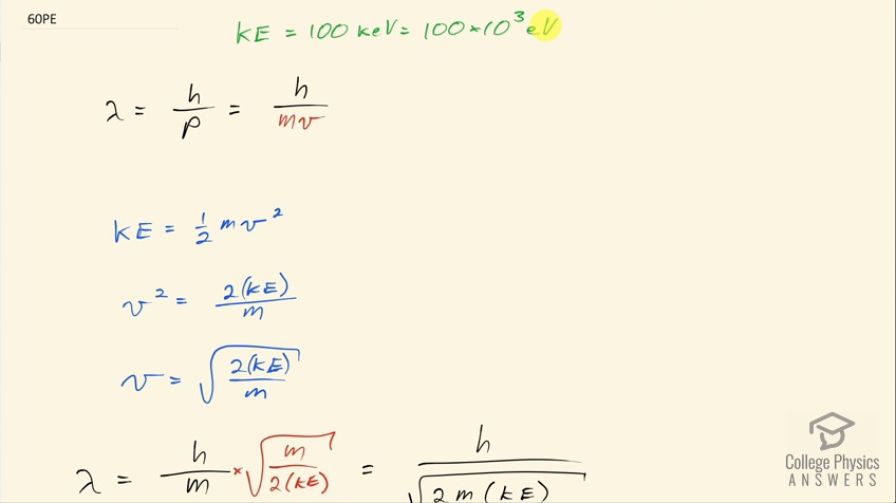 60PE
KE = 100 keV = 100 × 10³ eV
λ = h/p = h/mv
KE = 1/2 mv²
v² = 2(KE)/m
v = √(2(KE)/m)
λ = h/m × √(m/2(KE)) = h/√(2m(KE))
College Physics
ANSWERS